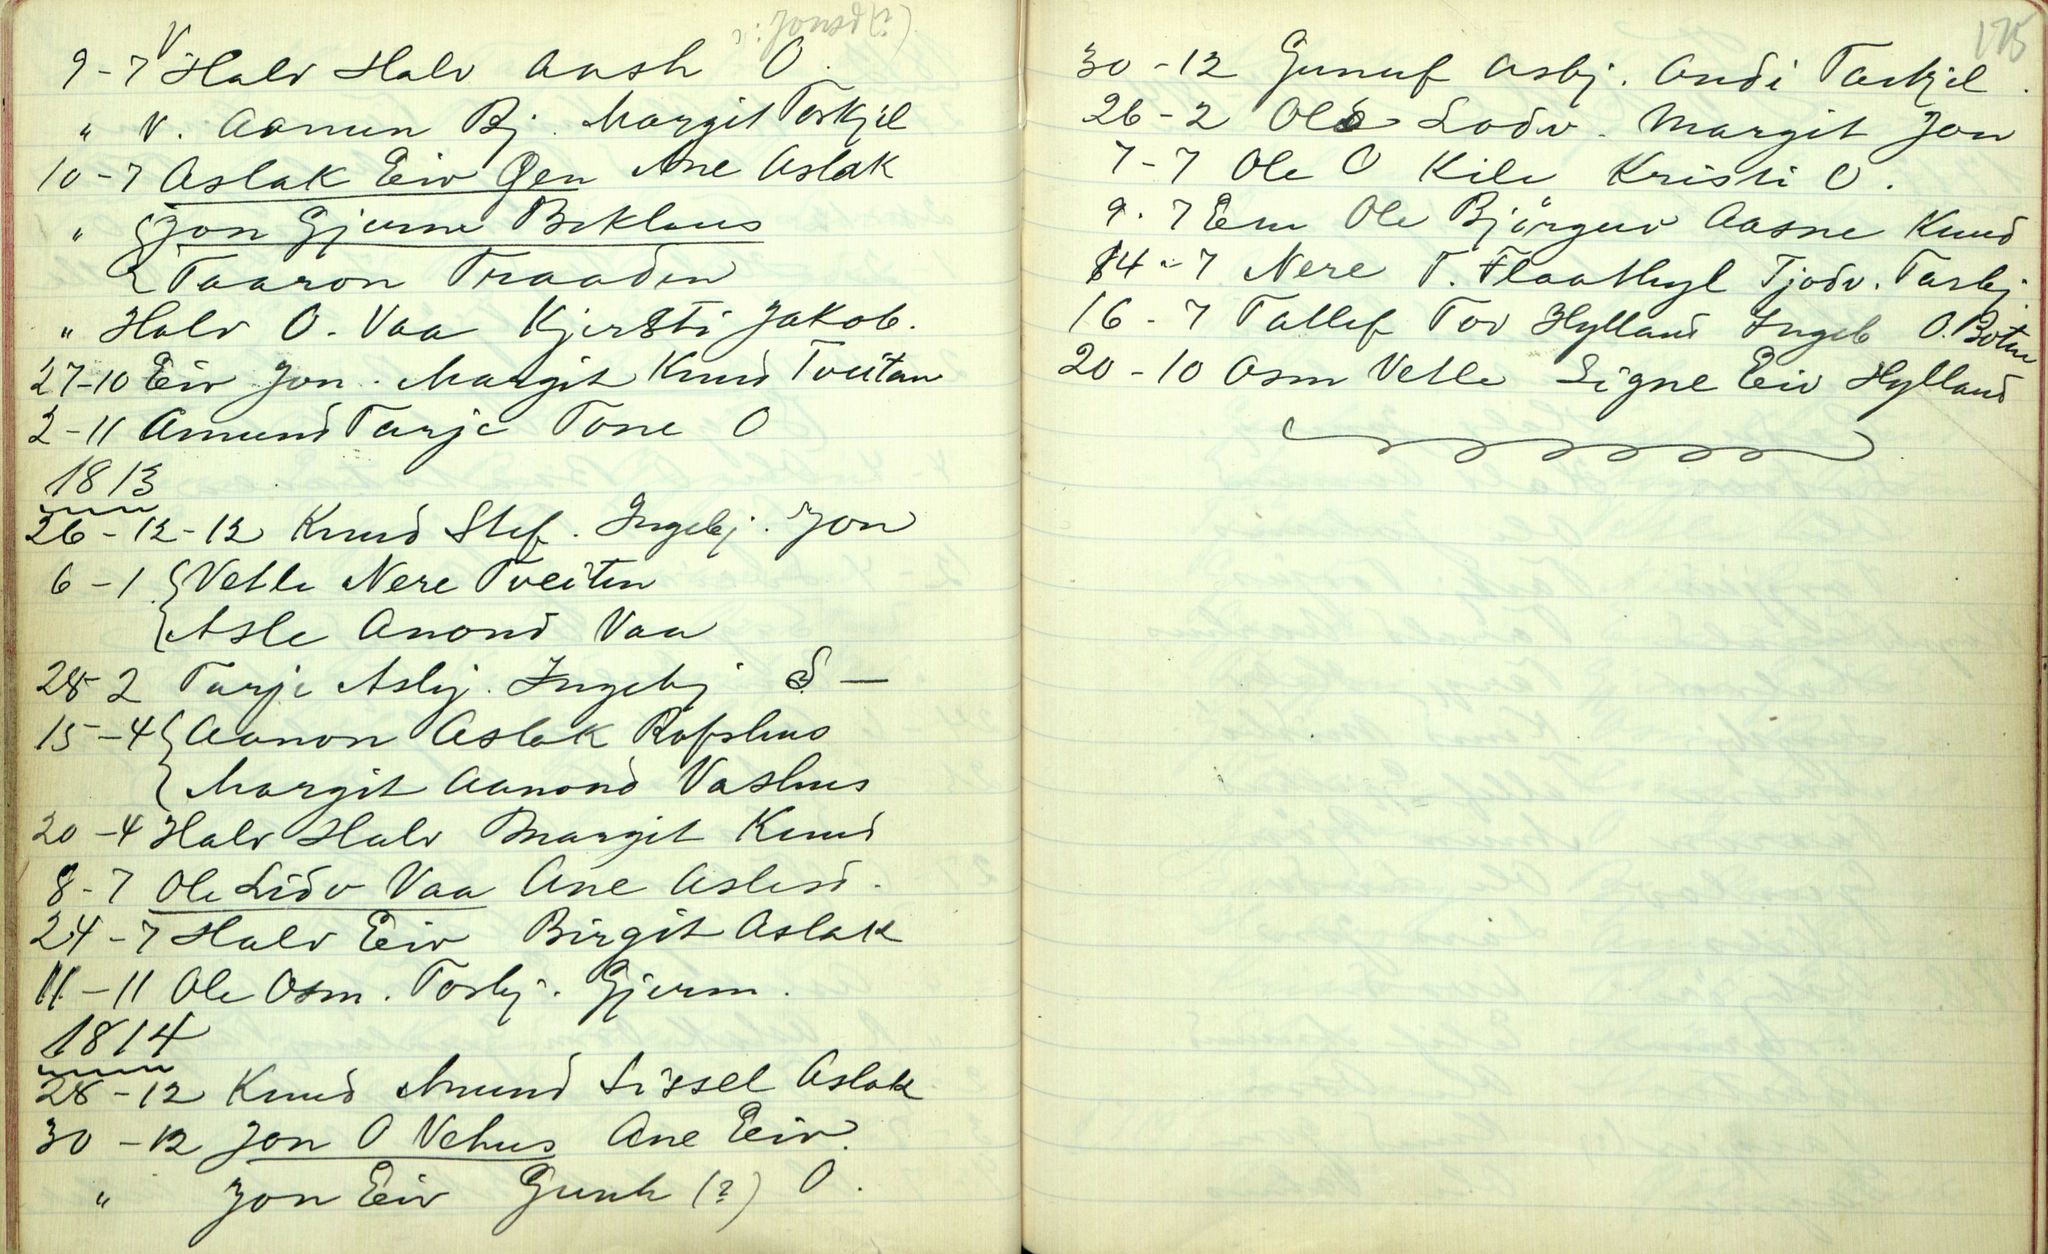 (? Jonsd.)
V
9-7 Halv Halv Aash O.
" V. Aamun Bj. Margit Torkjel
10-7 Aslak Eiv Gen Ane Aslak
" { Jon Gjerme Bekhus
{ Taaron Traaden
" Halv O. Vaa Kjersti Jakob.
27-10 Eiv Jon. Margit Knud Tveitan
2-11 Amund Tarje Tone O
1813
26-12-12 Knud Stef. Ingebj. Jon
6-1 { Vetle Nere Tveiten
{ Asle Anond Vaa
28-2 Tarje Asbj. Ingebj S —
15-4 { Aanon Aslak Rofshus
{ Margit Aanond Vashus
20-4 Halv Halv Margit Knud
8-7 Ole Lidv Vaa Ane Aslesd.
24-7 Halv Eiv Birgit Aslak
11-11 Ole Osm. Torbj. Gjerm.
1814
28-12 Knud Amund Sissel Aslak
30-12 Jon O Vehus Ane Eiv.
" Jon Eiv Gunh (?) O.
175
30-12 Gunuf Asbj. Andi Tarkjel.
26-2 Ole Lodv. Margit Jon
7-7 Ole O Kile Kristi O.
9-7 Em Ole Bjørguv Aasne Knud
14-7 Nere T. Flaathyl Tjodv. Tarbj.
16-7 Tallef Tov Hylland Ingeb O. Boten
20-10 Osm Vetle Signe Eiv Hylland